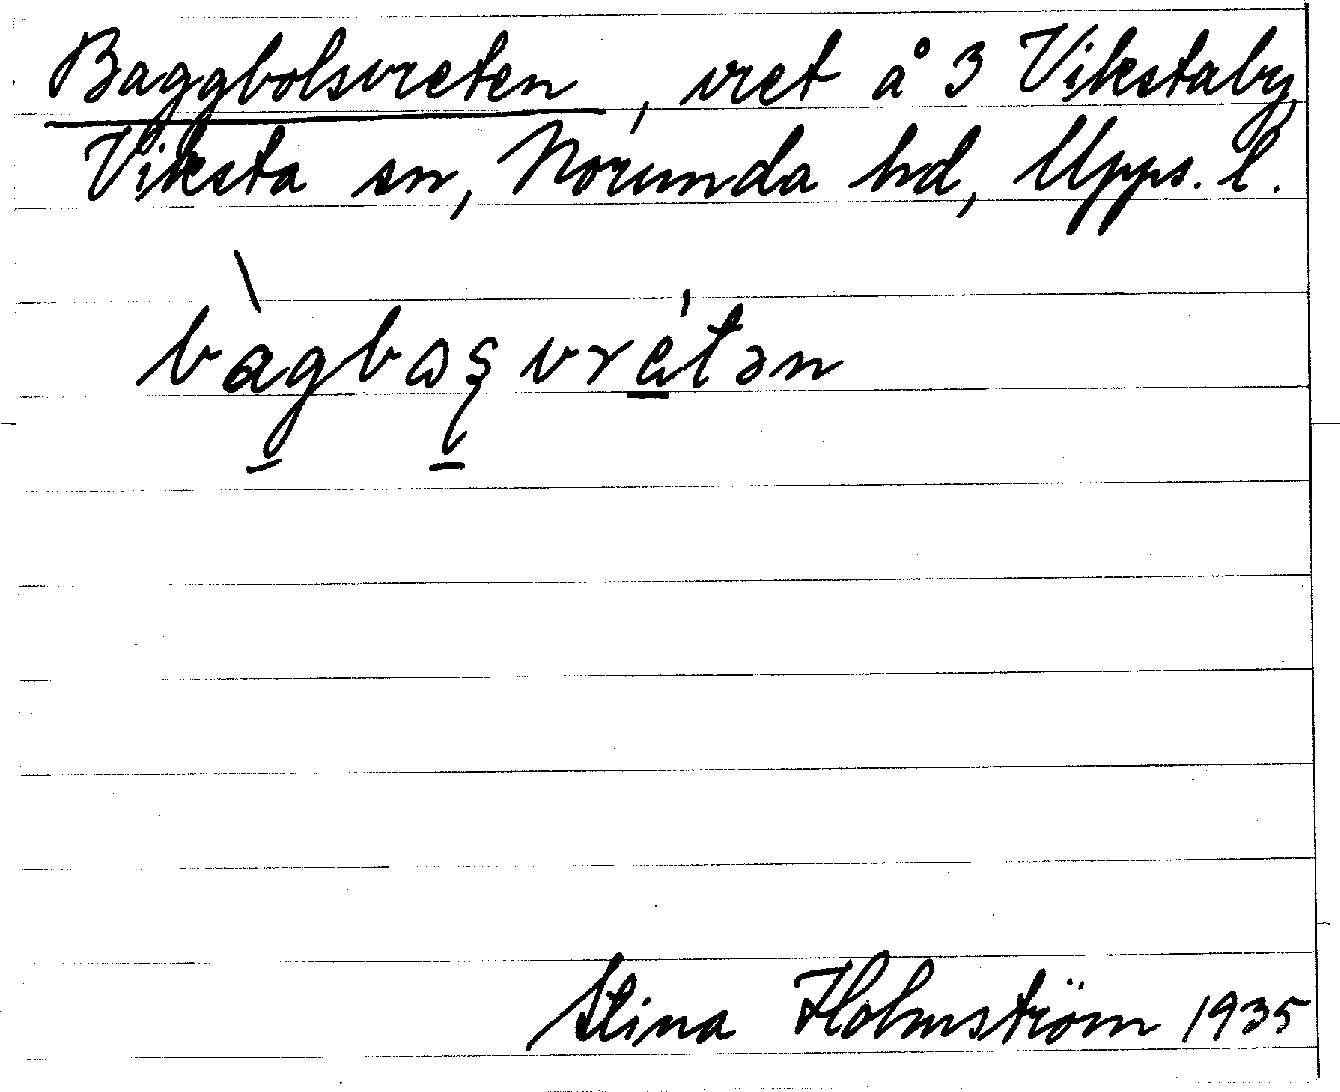 Baggbolsvreten, vret å 3 Vikstaby,
Viksta sn, Norunda hd, Upps. l.
bàgbɷȿvrétən
Stina Holmström 1935